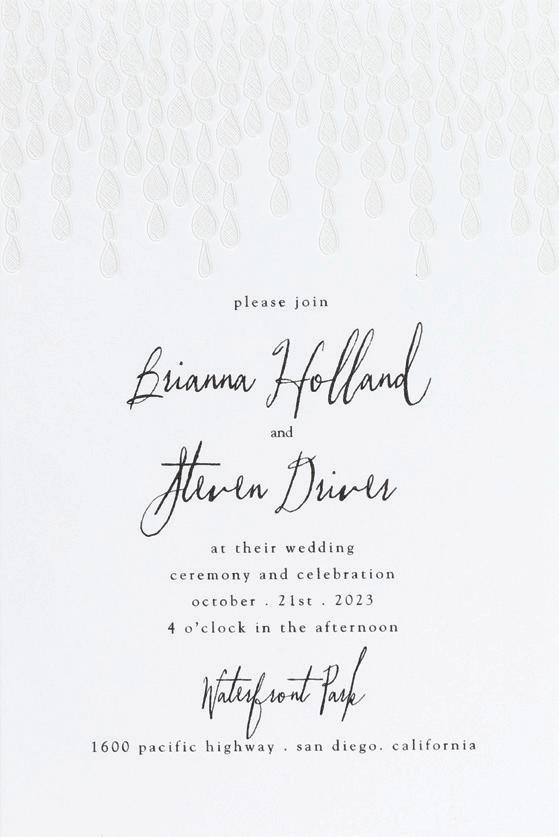 please join
Brianna Holland
and
Steven Driver
at their wedding
ceremony and celebration
october . 21st . 2023
4 o'clock in the afternoon
Waterfront Park
1600 pacific highway . san diego. california